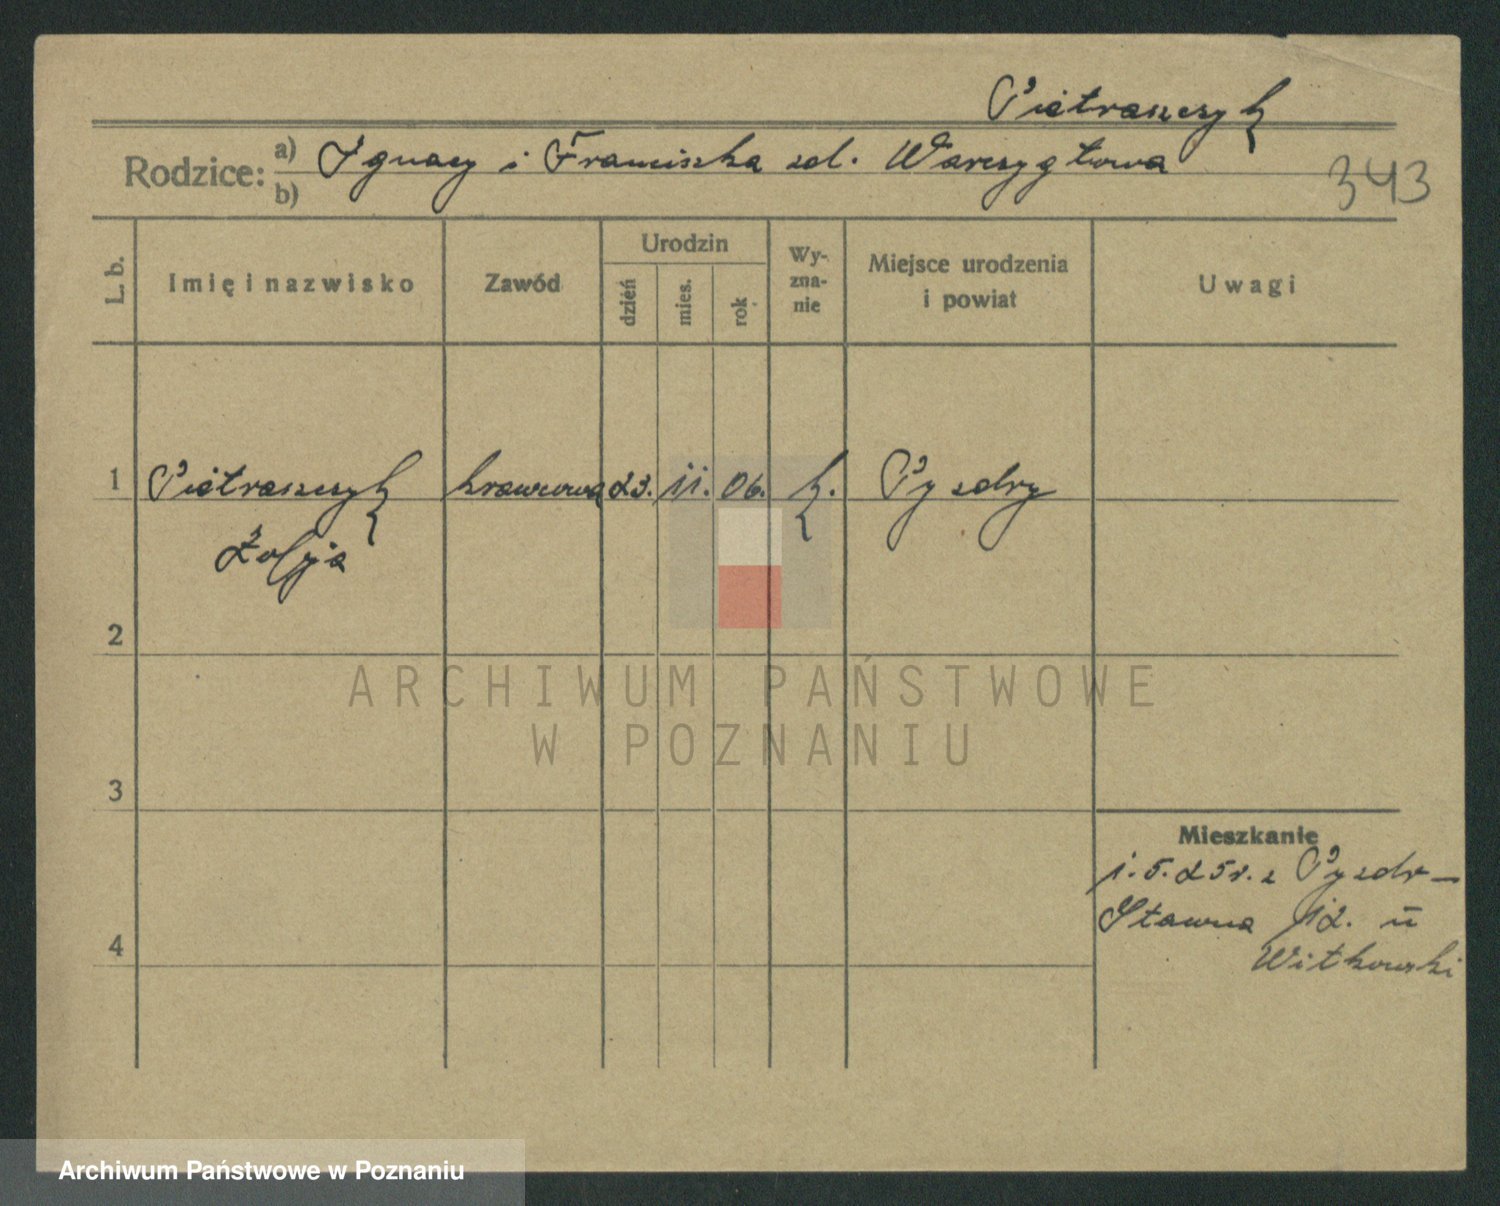 Pietraszczyk
Rodzice: a) Ignacy i Franciszka zd.
b)
343
L. b.
Imię i nazwisko
Zawód
Urodzin
dzień
mies.
rok
Wy-
zna-
nie
Miejsce urodzenia
i powiat
Uwagi
1 Pietraszczyk krawcowa 23. 11. 06. k. Pyzdry
Zofja
2
ARCHIWUM PAŃSTWOWE
W POZNANIU
3
Mieszkanie
1. 5. 25 r. z Pyzdr –
Stawna 12. u
4
Witkowski
Archiwum Państwowe w Poznaniu